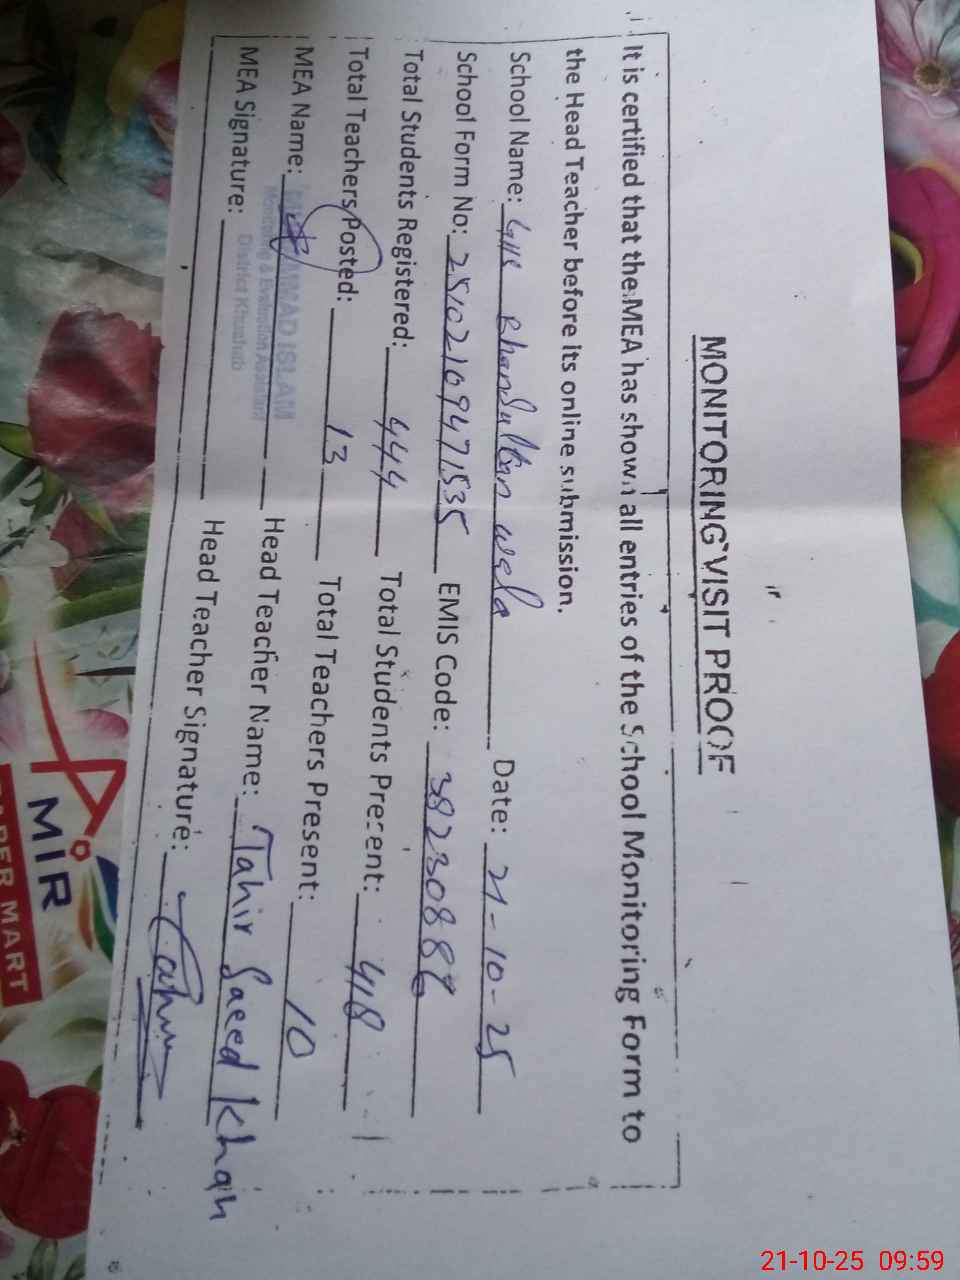 MONITORING VISIT PROOF
It is certified that the MEA has shown all entries of the School Monitoring Form to
the Head Teacher before its online submission.
School Name: Khansultan wala Date: 21-10-25
School Form No: 25102109471535 EMIS Code: 38230886
Total Students Registered: 444 Total Students Precent: 418
Total Teachers Posted: 13 Total Teachers Present: 10
MEA Name: Head Teacher Name: Tahir Saeed Khan
AMMAD ISLAM
Monitoring & Evaluation Assistant
District Khushab
MEA Signature: Head Teacher Signature:
AMIR
PAPER MART
21-10-25 09:59